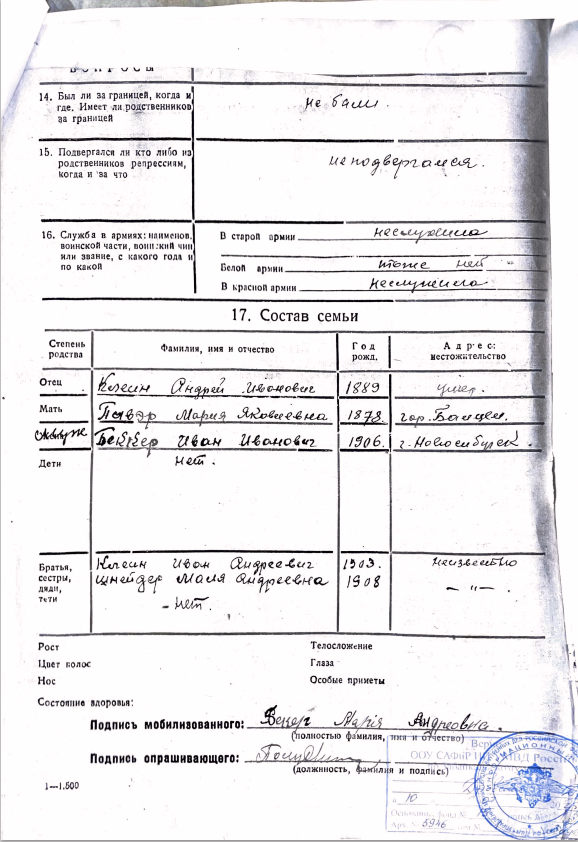 ВОПРОСЫ
14. Был ли за границей, когда и
где. Имеет ли родственников
за границей
не были.
15. Подвергался ли кто либо из
родственников репрессиям,
когда и за что
не подвергался.
16. Служба в армиях: наименов.
воинской части, воинский чин
или звание, с какого года и
по какой
В старой армии неслужила
Белой армии тоже нет
В красной армии неслужила
17. Состав семьи
Степень родства
Фамилия, имя и отчество
Год рожд.
Адрес: местожительство
Отец Клеин Андрей Иванович 1889 умер.
Мать Мария Яковлевна 1878 гор.
муж Беккер Иван Иванович 1906. г. Новосибирск.
Дети нет.
Братья, сестры, дяди, тети
Клеин Иван Андреевич 1903. неизвестно
Шнейдер Андреевна 1908 — " —.
- нет.
Рост
Телосложение
Цвет волос
Глаза
Нос
Особые приметы
Состояние здоровья:
Подпись мобилизованного: Бекерг Марiя Андреовна.
(полностью фамилия, имя и отчество)
Подпись опрашивающего:
(должность, фамилия и подпись)
1—1.500
10
5946